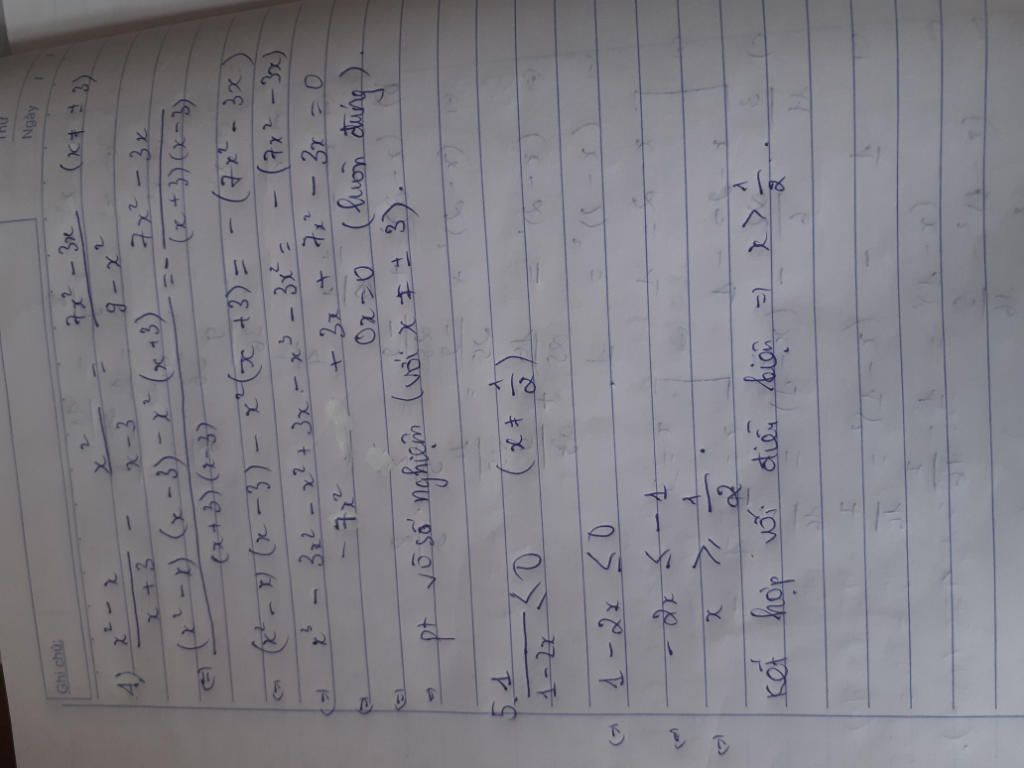 Thứ
Ngày
Ghi chú:
1) \frac{x² - x}{x + 3} - \frac{x²}{x - 3} = \frac{7x² - 3x}{9 - x²} (x ≠ ± 3)
(=) \frac{(x² - x)(x - 3) - x²(x + 3)}{(x + 3)(x - 3)} = - \frac{7x² - 3x}{(x + 3)(x - 3)}
(=) (x² - x)(x - 3) - x²(x + 3) = - (7x² - 3x)
(=) x³ - 3x² - x² + 3x - x³ - 3x² = - (7x² - 3x)
(=) - 7x² + 3x + 7x² - 3x = 0
(=) 0x = 0 (luôn đúng).
=) pt vô số nghiệm (với x ≠ ± 3).
5. \frac{1}{1 - 2x} ≤ 0 (x ≠ \frac{1}{2})
(=) 1 - 2x ≤ 0
(=) - 2x ≤ - 1
(=) x ≥ \frac{1}{2}.
Kết hợp với điều kiện =) x > \frac{1}{2}.